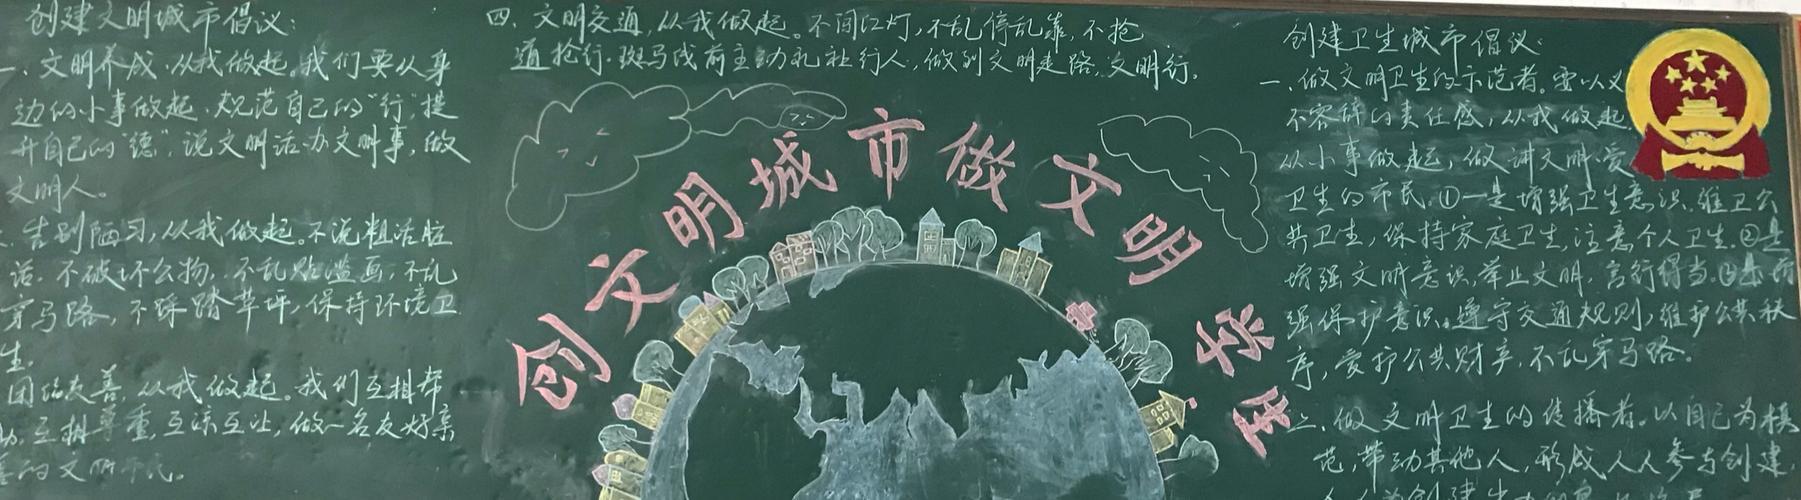 创建文明城市倡议:
一、文明养成,从我做起。我们要从身
边的小事做起,规范自己的“行”,提
升自己的“德”,说文明话,办文明事,做
文明人。
告别陋习,从我做起。不说粗话脏
话,不破坏公物,不乱贴滥画,不乱
穿马路,不踩踏草坪,保持环境卫
生。
团结友善,从我做起。我们互相帮
助,互相尊重,互谅互让,做一名友好亲
善的文明市民。
四、文明交通,从我做起。不闯红灯,不乱停乱靠,不抢
道抢行,斑马线前主动礼让行人,做到文明走路,文明行。
创文明城市做文明学生
创建卫生城市倡议:
一、做文明卫生的示范者。要以义
不容辞的责任感,从我做起,
从小事做起,做讲文明、爱
卫生的市民。①一是增强卫生意识,维卫公
共卫生,保持家庭卫生,注意个人卫生。②是
增强文明意识,举止文明,言行得当。③是
强保护意识。遵守交通规则,维护公共秩
序,爱护公共财产,不乱穿马路。
二、做文明卫生的传播者。以自己为模
范,带动其他人,形成人人参与创建,